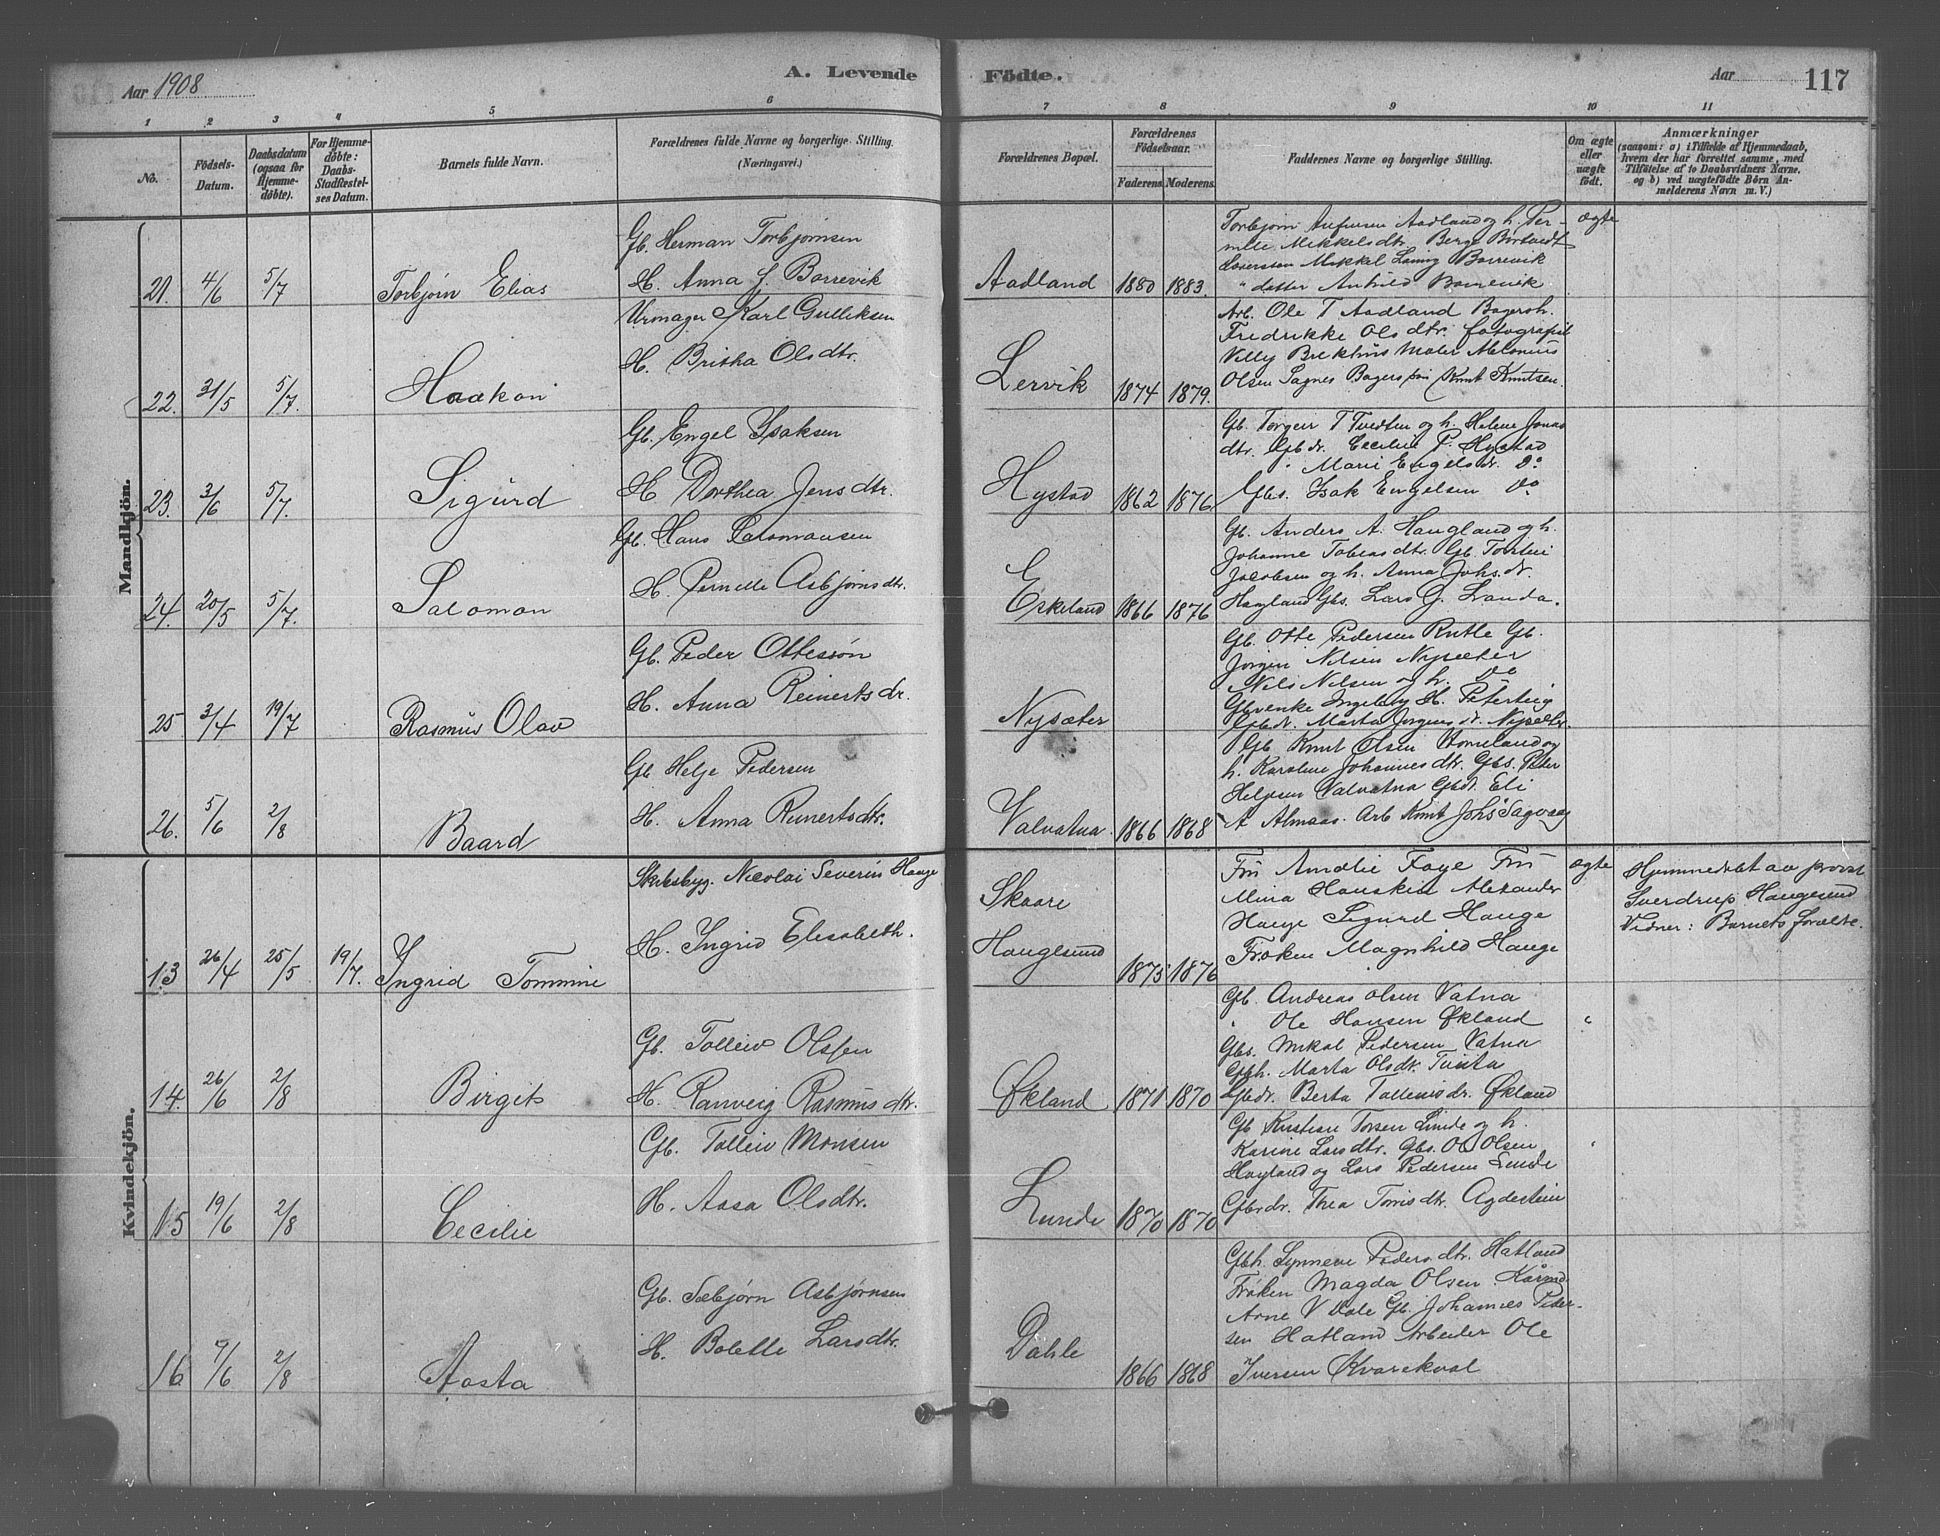 Aar 1908
A. Levende
Födte.
Aar
117
1 2 3 4 5 6 7 8 9 10 11
No.
Födsels-Datum.
Daabsdatum (ogsaa for Hjemme-döbte).
For Hjemme-döbte: Daabs-Stadfæstel-ses Datum.
Barnets fulde Navn.
Forældrenes fulde Navne og borgerlige Stilling. (Næringsvei.)
Forældrenes Bopæl.
Forældrenes Födselsaar.
Faderens Moderens
Faddernes Navne og borgerlige Stilling.
Om ægte eller uægte födt.
Anmærkninger
(saasom: a) i Tilfælde af Hjemmedaab,
hvem der har forrettet samme, med
Tilföielse af to Daabsvidners Navne,
og b) ved uægtefödte Börn An-
melderens Navn m. V.)
Mandkjön.
21. 4/6 5/7 Torbjørn Elias
Gb. Herman Torbjørnsen
H. Anna J. Borrevik
Aadland 1880 1883.
Torbjørn Aadland og h. Per-
nille Mikkelsdtr. Berge
Mikkel Borrevik
" datter Borrevik
ægte
22. 31/5 5/7. Haakon
Urmager Karl Gulliksen
H. Britha Olsdtr.
Lervik 1874 1879.
Arb. Ole T Aadland Bagersh.
Fredrikke Olsdtr. fotografist
Villy Brekhus Maler
Olsen Sagnes Knut Knutsen.
23. 3/6 5/7. Sigurd
Gb. Engel Isaksen
H Dorthea Jensdtr.
Hystad 1862 1876
Gb. Torgeir T Tvedten og h. Helene Jonas
dtr. Gbdr. Cecilie P. Hystad
" Marie Engelsdr. Do
Gbs. Isak Engelsen Do
24. 20/5 5/7. Salomon
Gb. Hans Salomonsen
H. Pernille Asbjørnsdtr.
Eskeland 1866 1876
Gb. Anders A. Haugland og h.
Johanne Tobiasdtr. Gb. Torstein
Jacobsen og h. Anna Johs.dr.
Høyland Gbs. Lars J. Landa.
25 3/4 19/7 Rasmus Olav
Gb. Peder Ottesson
H. Anna Reinertsdr.
Nysæter
Gb. Otte Pedersen Rutle Gb.
Jørgen Nilsen Nysæter
Nils Nilsen og h. Do
Gbvenke Ingeborg H. Petersteig
Gbdr. Marta Jørgensdr. Nysæter.
26. 5/6 2/8 Baard
Gb Helge Pedersen
H. Anna Reinertsdtr.
Valvatna 1866 1868
Gb Knut Olsen og
h. Karoline Johannesdtr. Gbs. Peter
Helgesen Valvatna Gbdt. Eli
A Almaas. Arb Knut Johs Sagvaag
Kvindekjön.
13 26/4 25/5 19/7. Ingrid Tommine
Skibsbyg. Nicolai Severin Hauge
H. Ingrid Elisabeth.
Skaare
Haugesund 1875 1876
Fru Amalie Faye Fru
Mina Hansken Alexander
Hauge Sigurd Hauge
Frøken Magnhild Hauge
ægte
Hjemmedøbt av provst
Sverdrup Haugesund
Vidner: Barnets Forældre.
14. 26/6 2/8 Birgit
Gb. Tolleiv Olsen
H. Ranveig Rasmusdtr.
Økland 1871 1870
Gb. Andreas Olsen Vatna
" Ole Hansen Økland
Gbs. Mikal Pedersen Vatna
Gbh. Marta Olsdtr. Tveita
Gbdr. Berta Tolleivsdr. Økland
15 19/6 2/8 Cecilie
Gb. Tolleiv Monsen
H. Aasa Olsdtr.
Lunde 1870 1870
Gb Kristian Torsen Lunde og h.
Karine Larsdtr. Gbs. O. Olsen
Høyland og Lars Pedersen Lunde
Gbdr. Thea Torrisdtr. Agdestein
16 9/6 2/8 Aasta
Gb. Sæbjørn Asbjørnsen
H. Bolette Larsdtr.
Dahle 1866 1868
Gbh. Synneve Pedersdtr. Hatland
Frøken Magda Olsen.
Arne V Dale Gb. Johannes Peder-
sen Hatland Arbeider Ole
Iversen Kvarekval